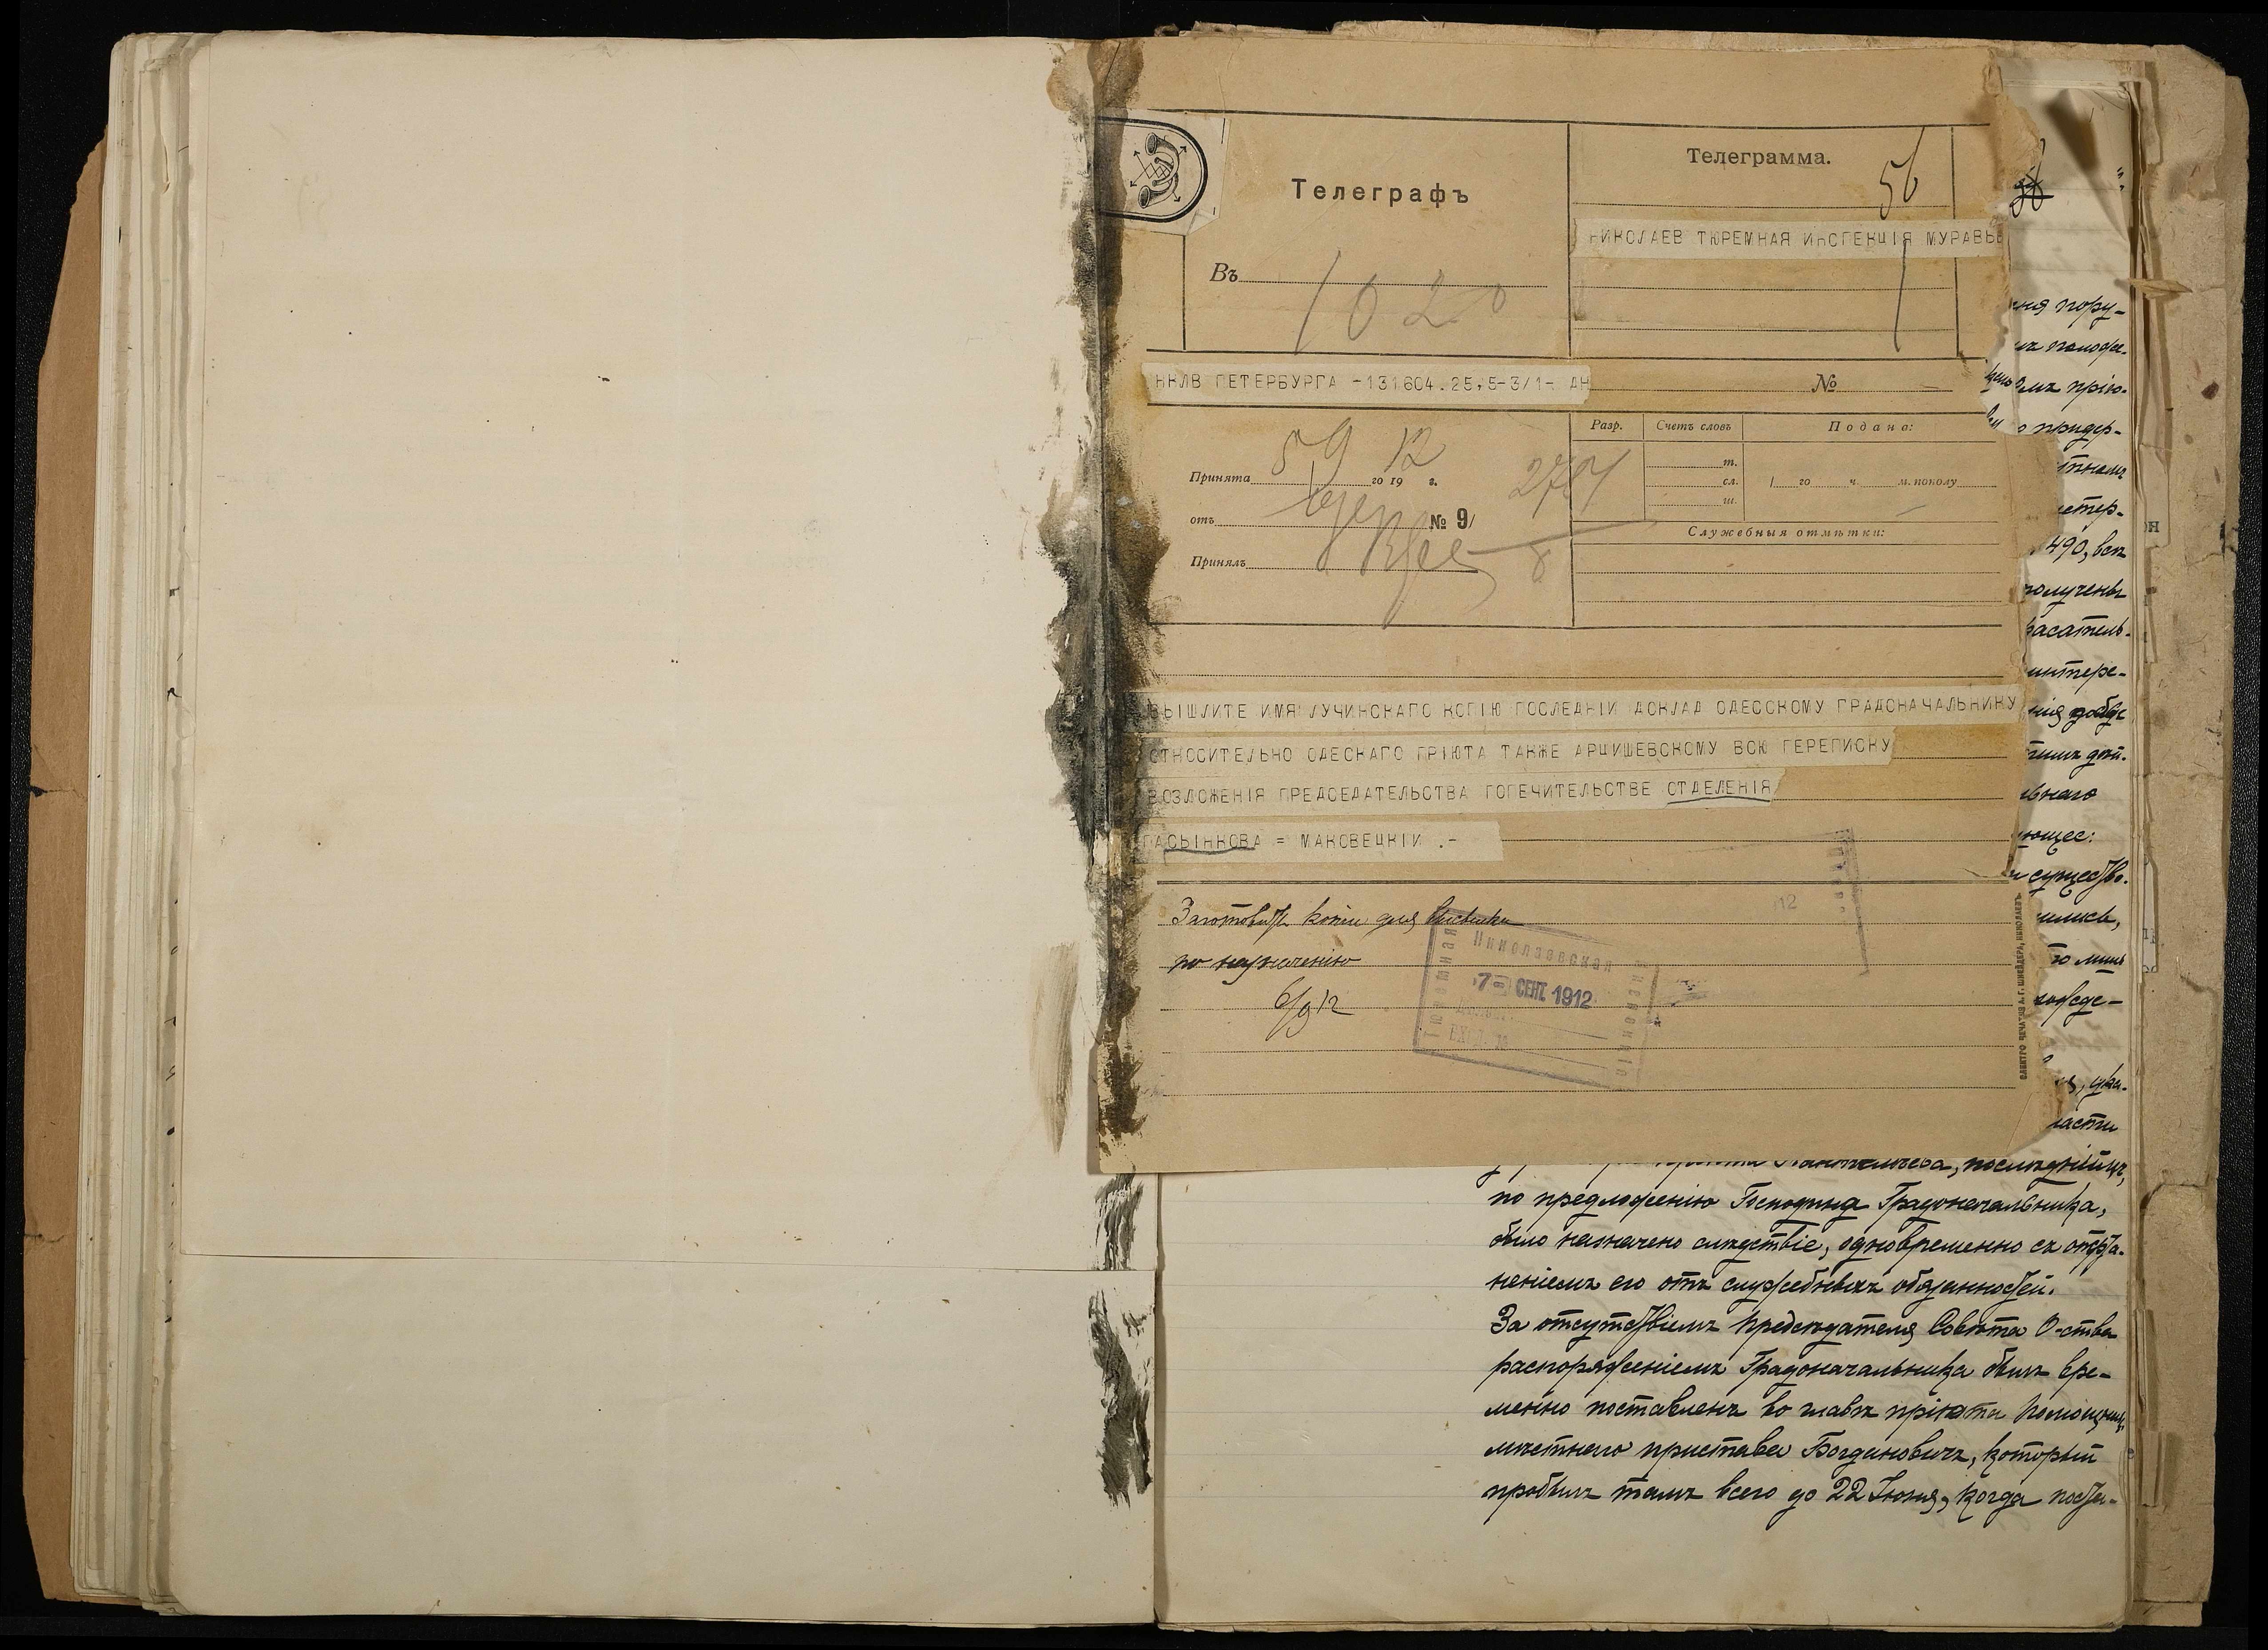 Телеграфъ
Въ
1020
Телеграмма.
56
НИКОЛАЕВ ТЮРЕМНАЯ ИНСПЕКЦІЯ МУРАВЬЕ
НКЛВ ПЕТЕРБУРГА -131604.25,5-3/1- ДН
№
Принята 5 9 го 19 12 г.
отъ № 9/
Принялъ
Разр.
Счетъ словъ
Подана:
т.
сл.
ш.
го ч. м. пополу
Служебныя отмѣтки:
ВЫШЛИТЕ ИМЯ ЛУЧИНСКАГО КОПІЮ ПОСЛЕДНІЙ ДОКЛАД ОДЕССКОМУ ГРАДОНАЧАЛЬНИКУ
ОТНОСИТЕЛЬНО ОДЕСКАГО ПРІЮТА ТАКЖЕ АРЦИШЕВСКОМУ ВСЮ ПЕРЕПИСКУ
ВОЗЛОЖЕНІЯ ПРЕДСЕДАТЕЛЬСТВА ПОПЕЧИТЕЛЬСТВЕ ОТДЕЛЕНІЯ
ПАСЫНКОВА = МАКОВЕЦКІЙ .-
Заготовить копіи для высылки
по назначенію
6/9 12
Николаевская
Тюремная
Инспекція
7 СЕНТ. 1912
ВХОД. №
12
ЭЛЕКТРО ПЕЧАТНЯ А. Г. ШНЕЙДЕРА, НИКОЛАЕВЪ.
нія пору-
положе-
омъ прію-
придер-
490, всѣ
получены
касатель-
интере-
ующее:
существо-
по предложенію Господина Градоначальника,
было назначено слѣдствіе, одновременно съ отстра-
неніемъ его отъ служебныхъ обязанностей.
За отсутствіемъ Предсѣдателя Совѣта О-ства
распоряженіемъ Градоначальника былъ вре-
менно поставленъ во главѣ пріюта Помощникъ
мѣстнаго пристава Богдановичъ, который
пробылъ тамъ всего до 22 Іюня, когда поста-